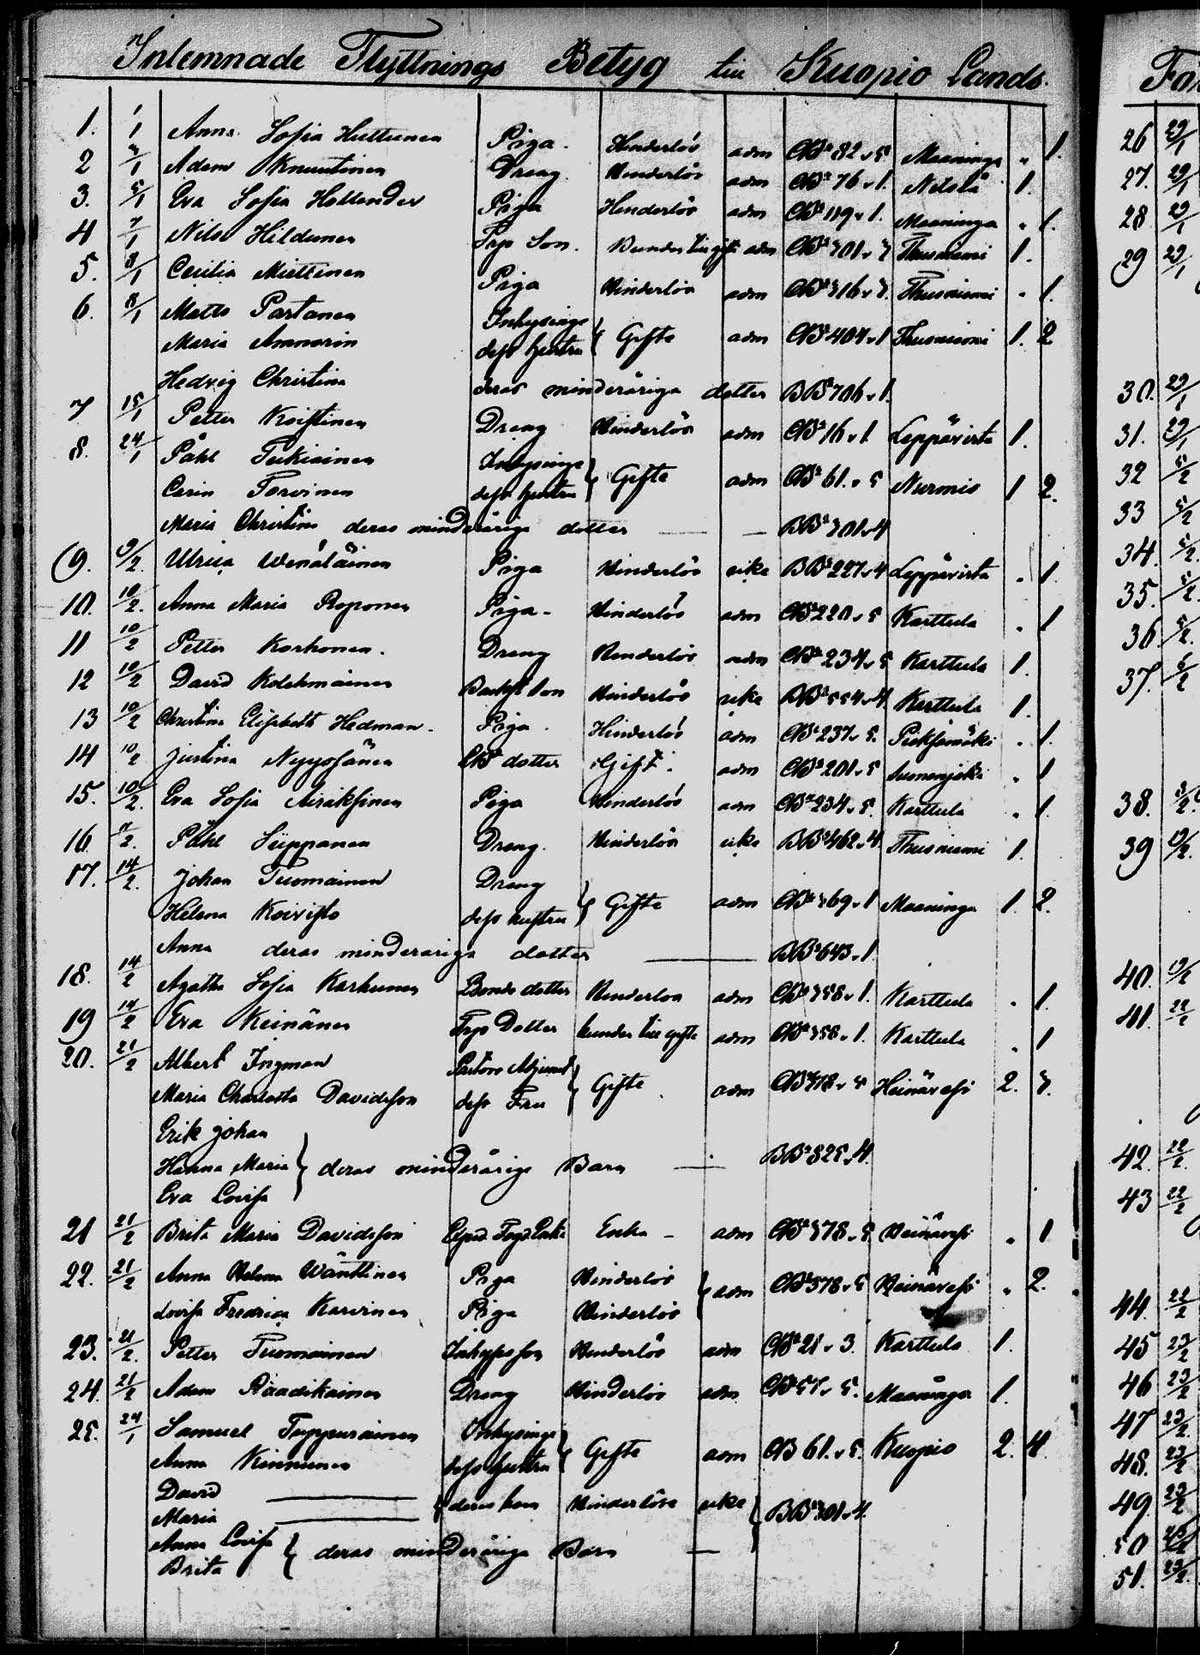 Inlemnade Flyttnings Betyg till Kuopio Lands
1. 1/1 Anna Sofia Huttunen Piga. Hinderlös adm CB² 82 v 5 Maaninga " 1.
2 /1 Adam Knuutinen Dreng. Hinderlös adm CB² 76 v 1. Nilsiä 1.
3. 5/1 Eva Sofia Hollender Piga Hinderlös adm CB² 119 v 1. Maaninga " 1.
4 7/1 Nils Hildunen Son. adm CB² 701 v Thusniemi 1.
5. 8/1 Cecilia Miettinen Piga Hinderlös adm CB² 716 v Thusniemi " 1.
6. 8/1 Matts Partanen Inhysinge
Maria Ammorin dess hustru } Gifte adm CB² 404 v 1 Thusniemi 1. 2
Hedvig Christina deras minderåriga dotter BB² 706 v 1.
7 15/1 Petter Koistinen Dreng Hinderlös adm CB² 16 v 1. Leppävirta 1.
8. 24/1 Påhl Tukiainen Inhysinge
Carin Torvinen dess hustru } Gifte adm CB² 61. v 5 Nurmis 1 2.
Maria Christina deras minderåriga dotter — — BB² 701 v 4
(9. 9/2. Ulrica Wenäläinen Piga Hinderlös icke BB² 227 v 4 Leppävirta . 1.
10. 10/2. Anna Maria Roponen Piga - Hinderlös adm CB² 220 v 5 Karttula . 1
11 10/2 Petter Korhonen. Dreng Hinderlös adm CB² 234 v 5 Karttula 1.
12 10/2 David Kolehmainen son Hinderlös icke BB² 554 v 4. Karttula 1.
13 10/2 Christina Elisabeth Hedman. Piga Hinderlös adm CB² 237 v 5. Pieksämäki . 1.
14 10/2 Justina Nyyssönen dotter Gift. adm CB² 201 v 5 . 1
15. 10/2. Eva Sofia Airaksinen Piga Hinderlös adm CB² 234 v 5. Karttula . 1
16. /2. Påhl Sieppanen Dreng. Hinderlös icke BB² 462 v 4. Thusniemi 1.
17. 14/2. Johan Tuomainen Dreng
Helena Koivisto dess hustru } Gifte adm CB² 769 v 1 Maaninga 1. 2.
Anna deras minderåriga dotter — BB² 643 v 1.
18. 14/2 Agatha Sofia Karhunen Bonde dotter Hinderlös adm CB² 758 v 1. Karttula . 1.
19 14/2 Eva Keinänen Dotter adm CB² 758 v 1. Karttula . 1
20. 21/2 Albert Ingman Pastors Adjunct
Maria Charlotta Davidsson dess Fru } Gifte adm CB² 378 v 5 Heinävesi 2. 3.
Erik Johan
Hanna Maria } deras minderåriga Barn — BB² 525 v 4.
Eva Lovisa
21 21/2 Brita Maria Davidsson Enka - adm CB² 378 v 5 Heinävesi . 1
22. 21/2 Anna Helena Wänttinen Piga Hinderlös
Lovisa Fredrica Karvinen Piga Hinderlös } adm CB² 378 v 5 Heinävesi . 2.
23. 21/2. Petter Tuomainen Hinderlös adm CB² 21 v 3. Karttula 1.
24. 21/2 Adam Räädikäinen Dreng Hinderlös adm CB² 57 v 5. Maaninga 1.
25. 24/1 Samuel Tuppurainen Inhysinge
Anna Kinnunen dess hustru } Gifte adm CB 61. v 5. Kuopio 2. 4.
David —
Maria — } deras barn Hinderlöse icke } BB² 701 v 4.
Anna Lovisa
Brita } deras minderåriga Barn —
26 29/1
27. 29/1
28 29/1
29 29/1
30. 29/1
31. 29/1
32 5/2
33 5/2
34. 5/2.
35. 5/2.
36. 5/2.
37. 6/2
38. 8/2.
39 19/2.
40. 19/2
41. 22/2
42. 22/2
43 22/2
44. 22/2
45 23/2
46 23/2
47 23/2
48. 23/2
49. 23/2
50
51. 23/2.